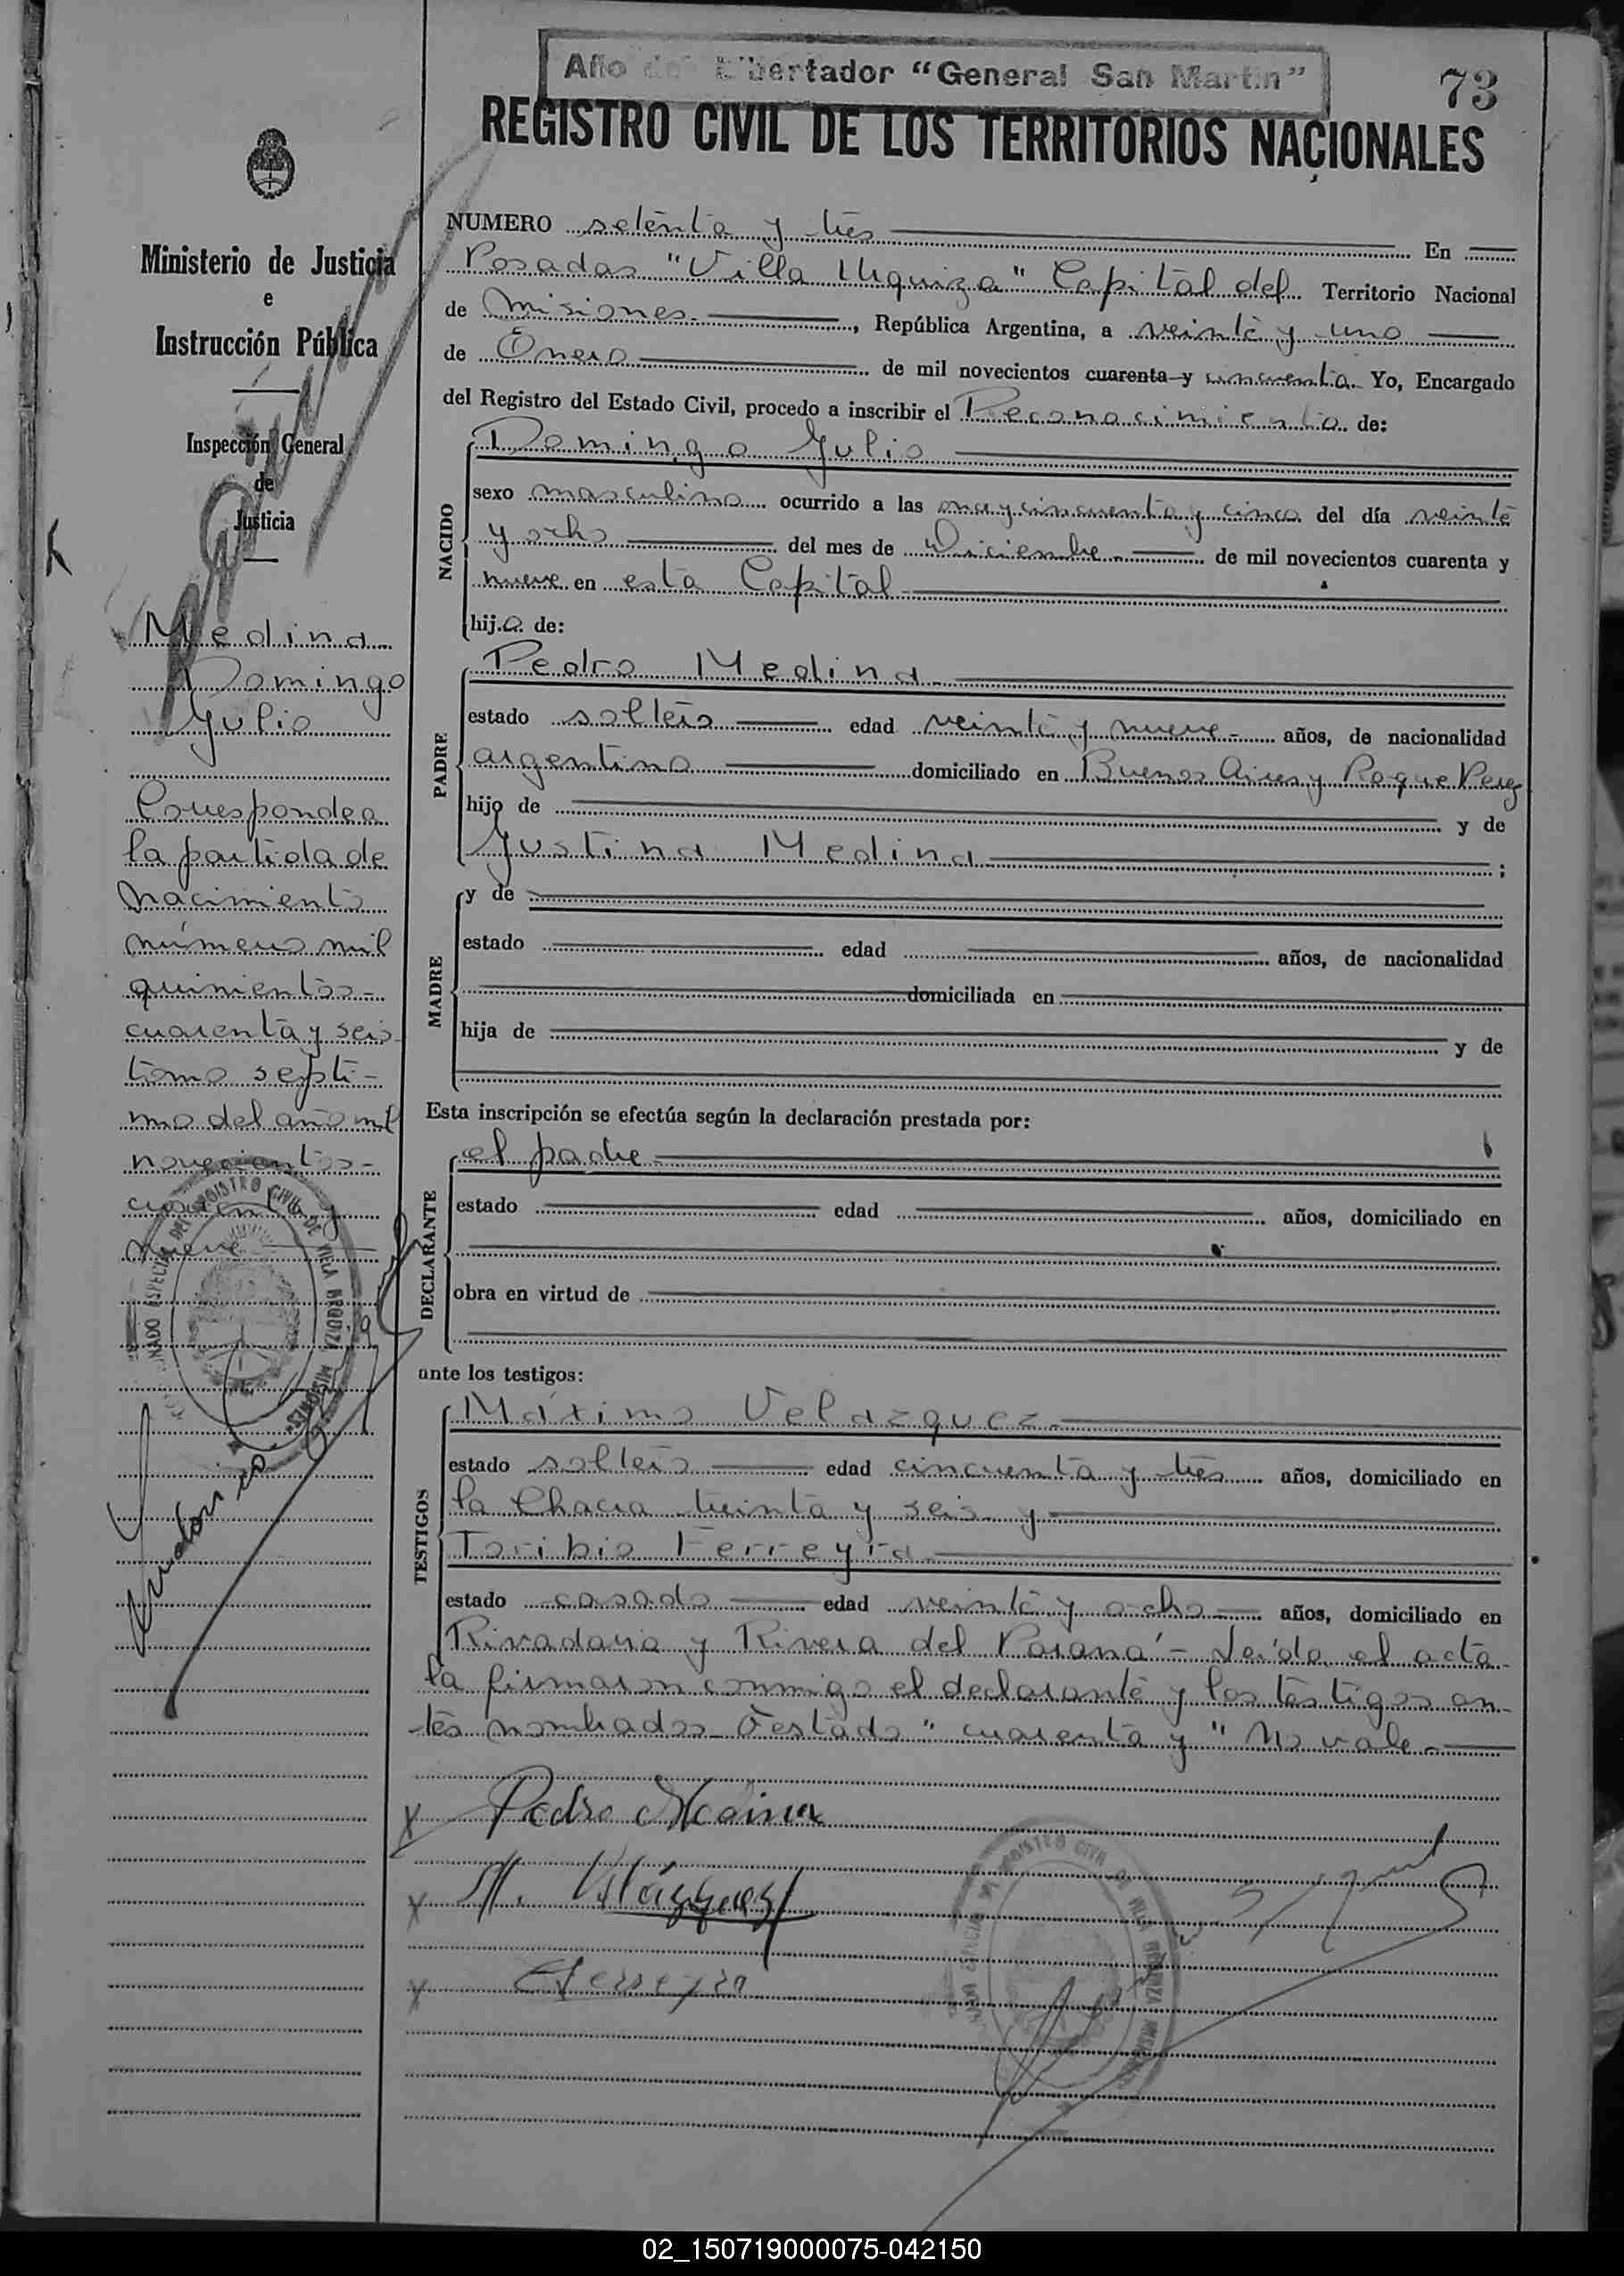 Año del Libertador "General San Martín"
73
REGISTRO CIVIL DE LOS TERRITORIOS NACIONALES
Ministerio de Justicia
e
Instrucción Pública
Inspección General
de
Justicia
Medina
Domingo
Julio
Corresponde a
la partida de
nacimiento
número mil
quinientos
cuarenta y seis
tomo septi-
mo del año mil
novecientos
cuarenta y
nueve
NUMERO setenta y tres En
Posadas "Villa Urquiza" Capital del Territorio Nacional
de Misiones, República Argentina, a veinte y uno
de Enero de mil novecientos cuarenta y cincuenta. Yo, Encargado
del Registro del Estado Civil, procedo a inscribir el Reconocimiento de:
NACIDO
Domingo Julio
sexo masculino ocurrido a las once y cincuenta y cinco del día veinte
y ocho del mes de Diciembre de mil novecientos cuarenta y
nueve en esta Capital
hijo de:
PADRE
Pedro Medina
estado soltero edad veinte y nueve años, de nacionalidad
argentino domiciliado en Buenos Aires y Roque Perez
hijo de y de
Justina Medina ;
MADRE
y de
estado edad años, de nacionalidad
domiciliada en
hija de y de
Esta inscripción se efectúa según la declaración prestada por:
DECLARANTE
el padre
estado edad años, domiciliado en
obra en virtud de
ante los testigos:
TESTIGOS
Máximo Velazquez
estado soltero edad cincuenta y tres años, domiciliado en
la Chacra treinta y seis y
Toribio Ferreyra
estado casado edad veinte y ocho años, domiciliado en
Rivadavia y Rivera del Paraná - Leída el acta
la firmaron conmigo el declarante y los testigos an-
tes nombrados. Testado "cuarenta y" No vale.
Pedro Medina
M. Velázquez
Ferreyra
02_150719000075-042150